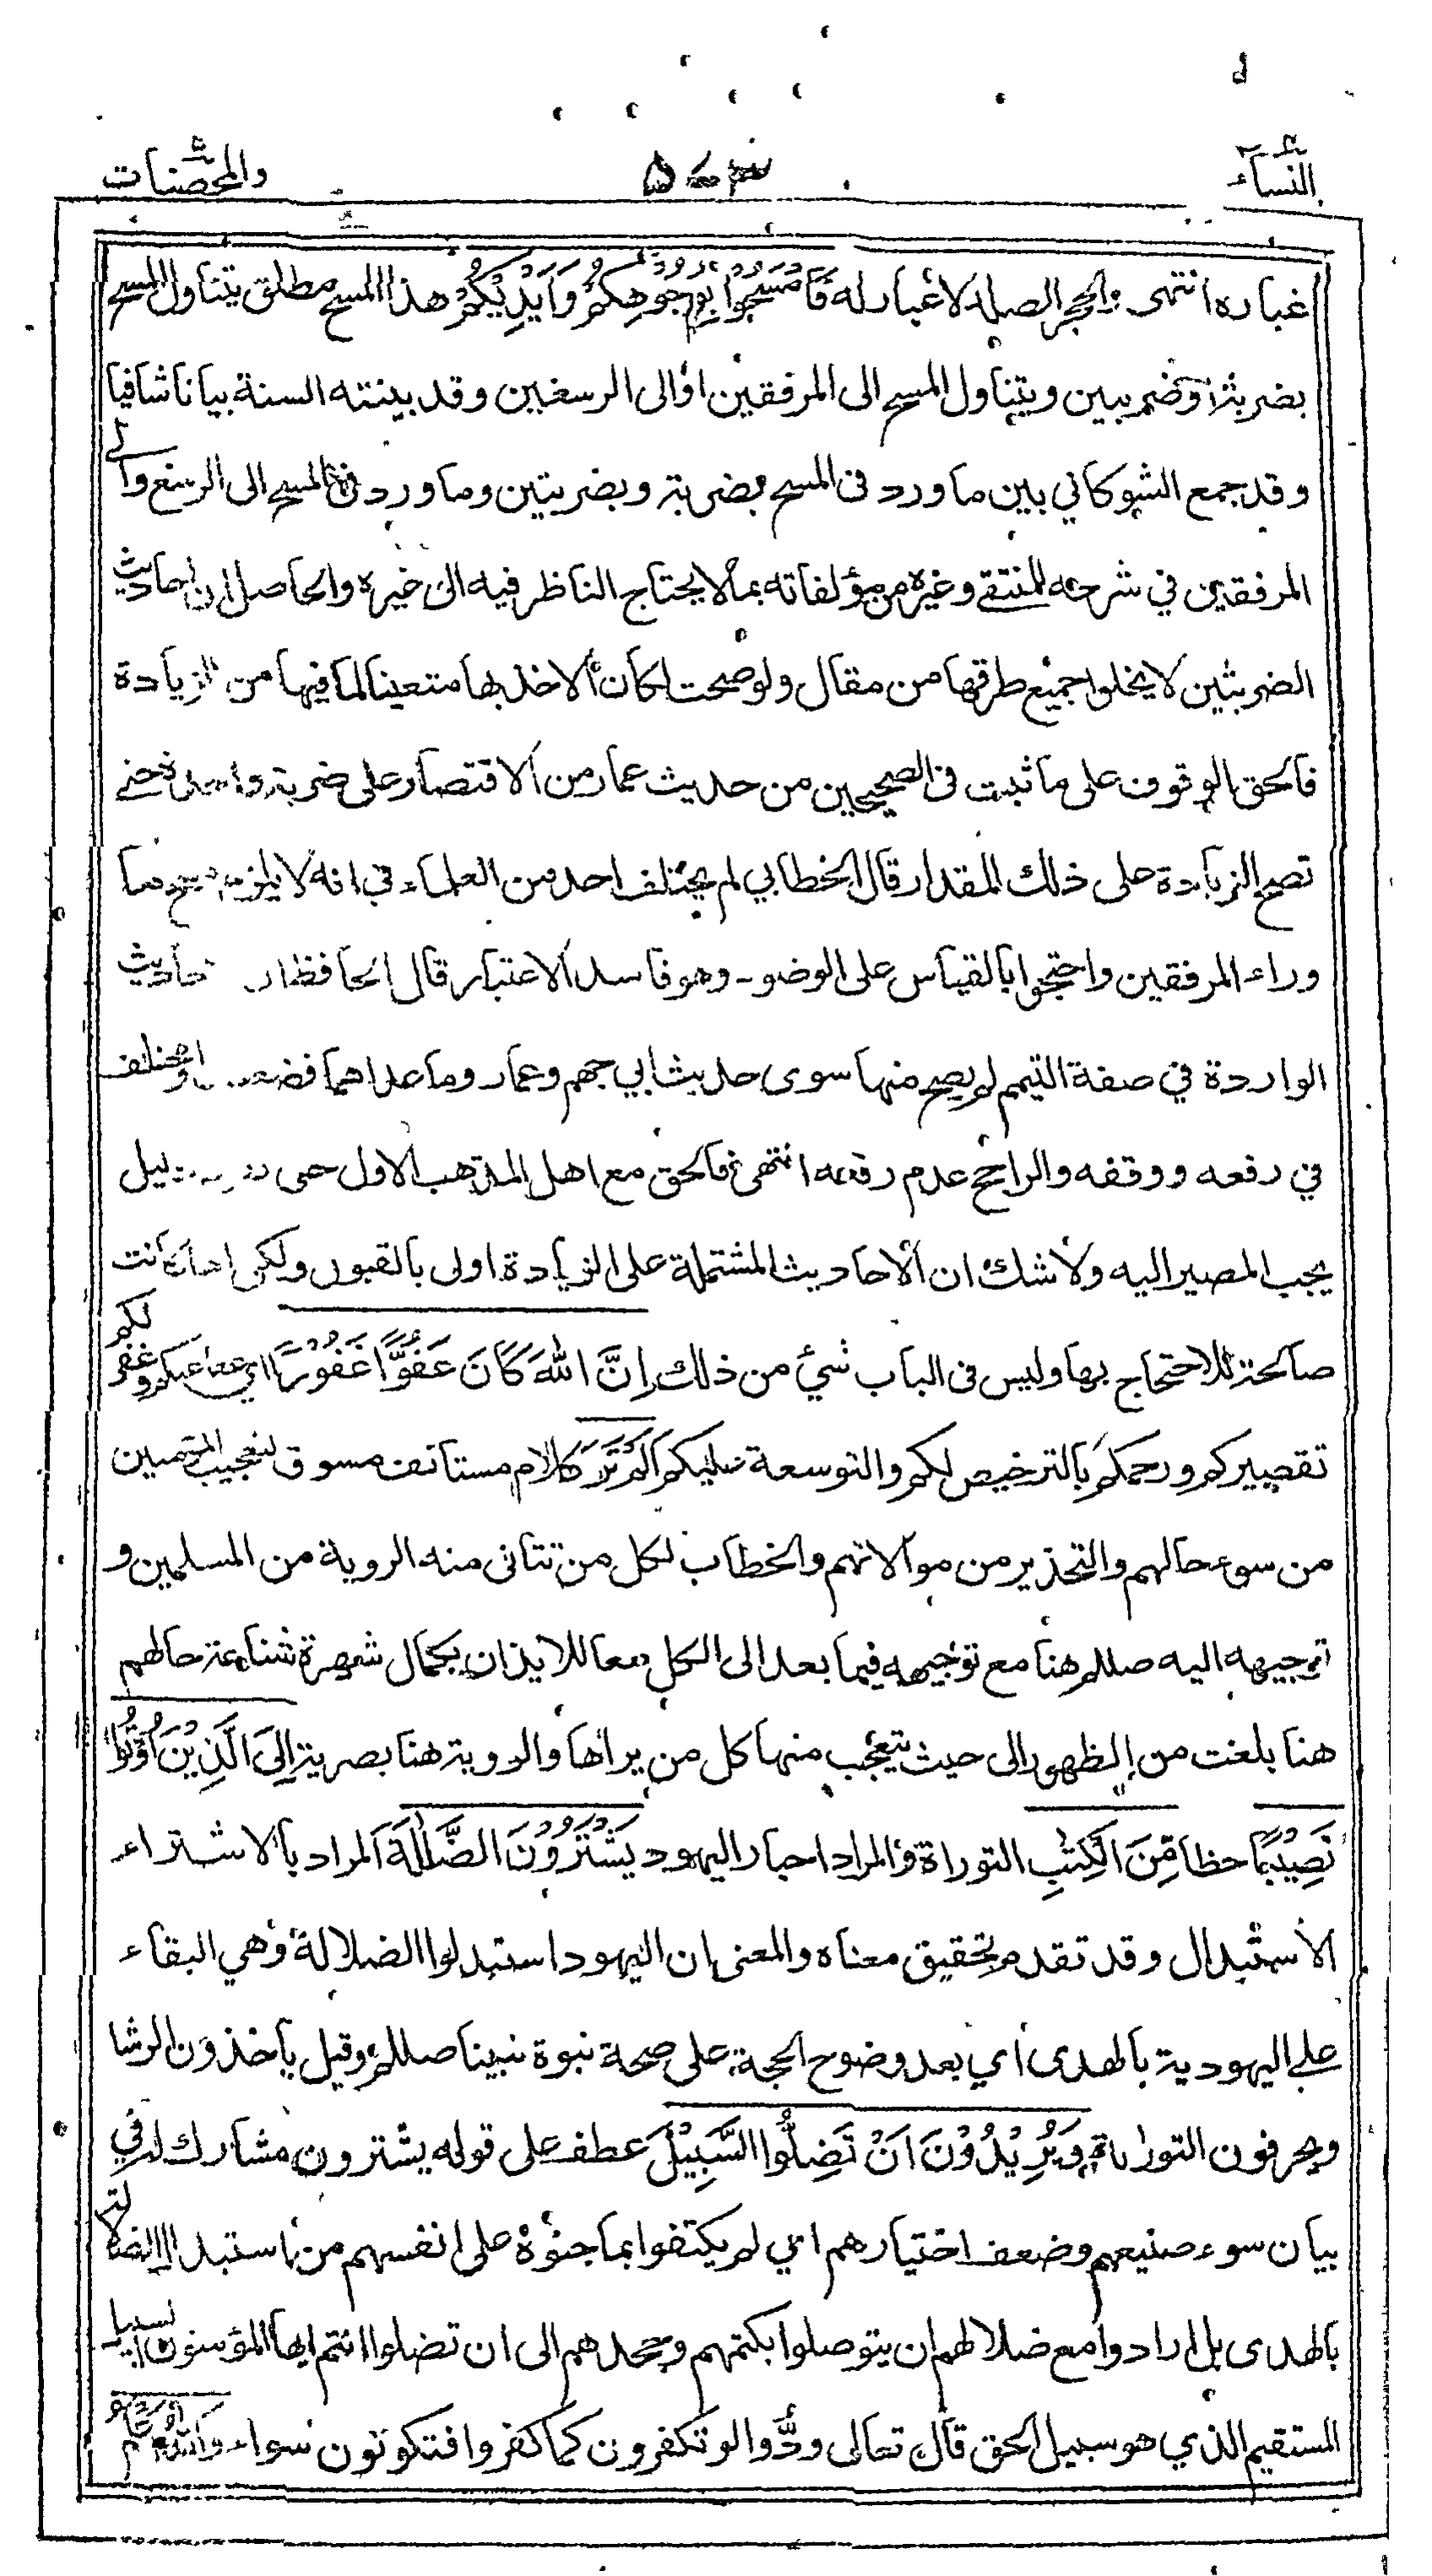 النساء
والمحصنت
غباره انتهى والحجر الصلد لا غبار له فَامْسَحُوْا بِوُجُوْهِكُمْ وَاَيْدِيْكُمْ هذا المسح مطلق يتناول المسح
بضربة او ضربتين ويتناول المسح الى المرفقين او الى الرسغين وقد بينته السنة بيانا شافيا
وقد جمع الشوكاني بين ما ورد في المسح بضربة وبضربتين وما ورد في المسح الى الرسغ والى
المرفقين في شرحه للمنتقى وغيره من مؤلفاته بما لا يحتاج الناظر فيه الى غيره والحاصل ان احاديث
الضربتين لا يخلوا جميع طرقها من مقال ولو صحت لكان الاخذ بها متعينا لما فيها من الزيادة
فالحق الوقوف على ما ثبت في الصحيحين من حديث عمار من الاقتصار على ضربة واحدة حتى
تصح الزيادة على ذلك المقدار قال الخطابي لم يختلف احد من العلماء في انه لا يلزم مسح ما
وراء المرفقين واحتجوا بالقياس على الوضوء وهو فاسد الاعتبار قال الحافظ ان احاديث
الواردة في صفة التيمم لم يصح منها سوى حديث ابي جهم وعمار وما عداهما فضعيف او مختلف
في رفعه ووقفه والراجح عدم رفعه انتهى فالحق مع اهل المذهب الاول حتى دليل
يجب المصير اليه ولا شك ان الاحاديث المشتملة على الزيادة اولى بالقبول ولكن اذا كانت
صالحة للاحتجاج بها وليس في الباب شيء من ذلك اِنَّ اللّٰهَ كَانَ عَفُوًّا غَفُوْرًا اي عفا عنكم وغفر لكم
تقصيركم ورحمكم بالترخيص لكم والتوسعة عليكم اَلَمْ تَرَ كلام مستانف مسوق لتعجيب المؤمنين
من سوء حالهم والتحذير من موالاتهم والخطاب لكل من تتاتى منه الروية من المسلمين و
توجيهه اليه صللم هنا مع توجيهه فيما بعد الى الكل معا للايذان بكمال شهرة شناعة حالهم
هنا بلغت من الظهور الى حيث يتعجب منها كل من يراها والروية هنا بصرية اِلَى الَّذِيْنَ اُوْتُوْا
نَصِيْبًا حظا مِّنَ الْكِتٰبِ التوراة والمراد احبار اليهود يَشْتَرُوْنَ الضَّلٰلَةَ المراد بالاشتراء
الاستبدال وقد تقدم تحقيق معناه والمعنى ان اليهود استبدلوا الضلالة وهي البقاء
على اليهودية بالهدى اي بعد وضوح الحجة على صحة نبوة نبينا صللم وقيل ياخذون الرشا
ويحرفون التوراة وَيُرِيْدُوْنَ اَنْ تَضِلُّوا السَّبِيْلَ عطف على قوله يشترون مشارك له في
بيان سوء صنيعهم وضعف اختيارهم اي لم يكتفوا بما جنوه على انفسهم من استبدال الضلالة
بالهدى بل ارادوا مع ضلالهم ان يتوصلوا بكتمهم وجحدهم الى ان تضلوا انتم ايها المؤمنون السبيل
المستقيم الذي هو سبيل الحق قال تعالى ودُّوا لو تكفرون كما كفروا فتكونون سواء وَاللّٰهُ اَعْلَمُ